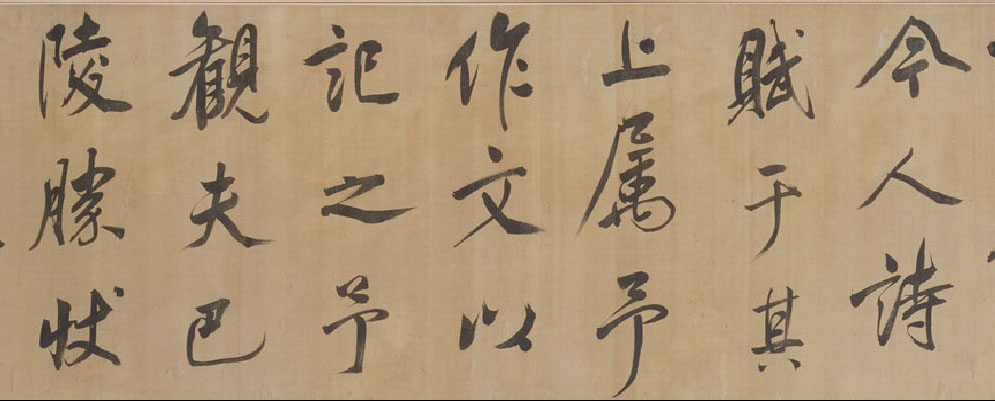 今人詩
賦于其
上属予
作文以
記之予
觀夫巴
陵勝状